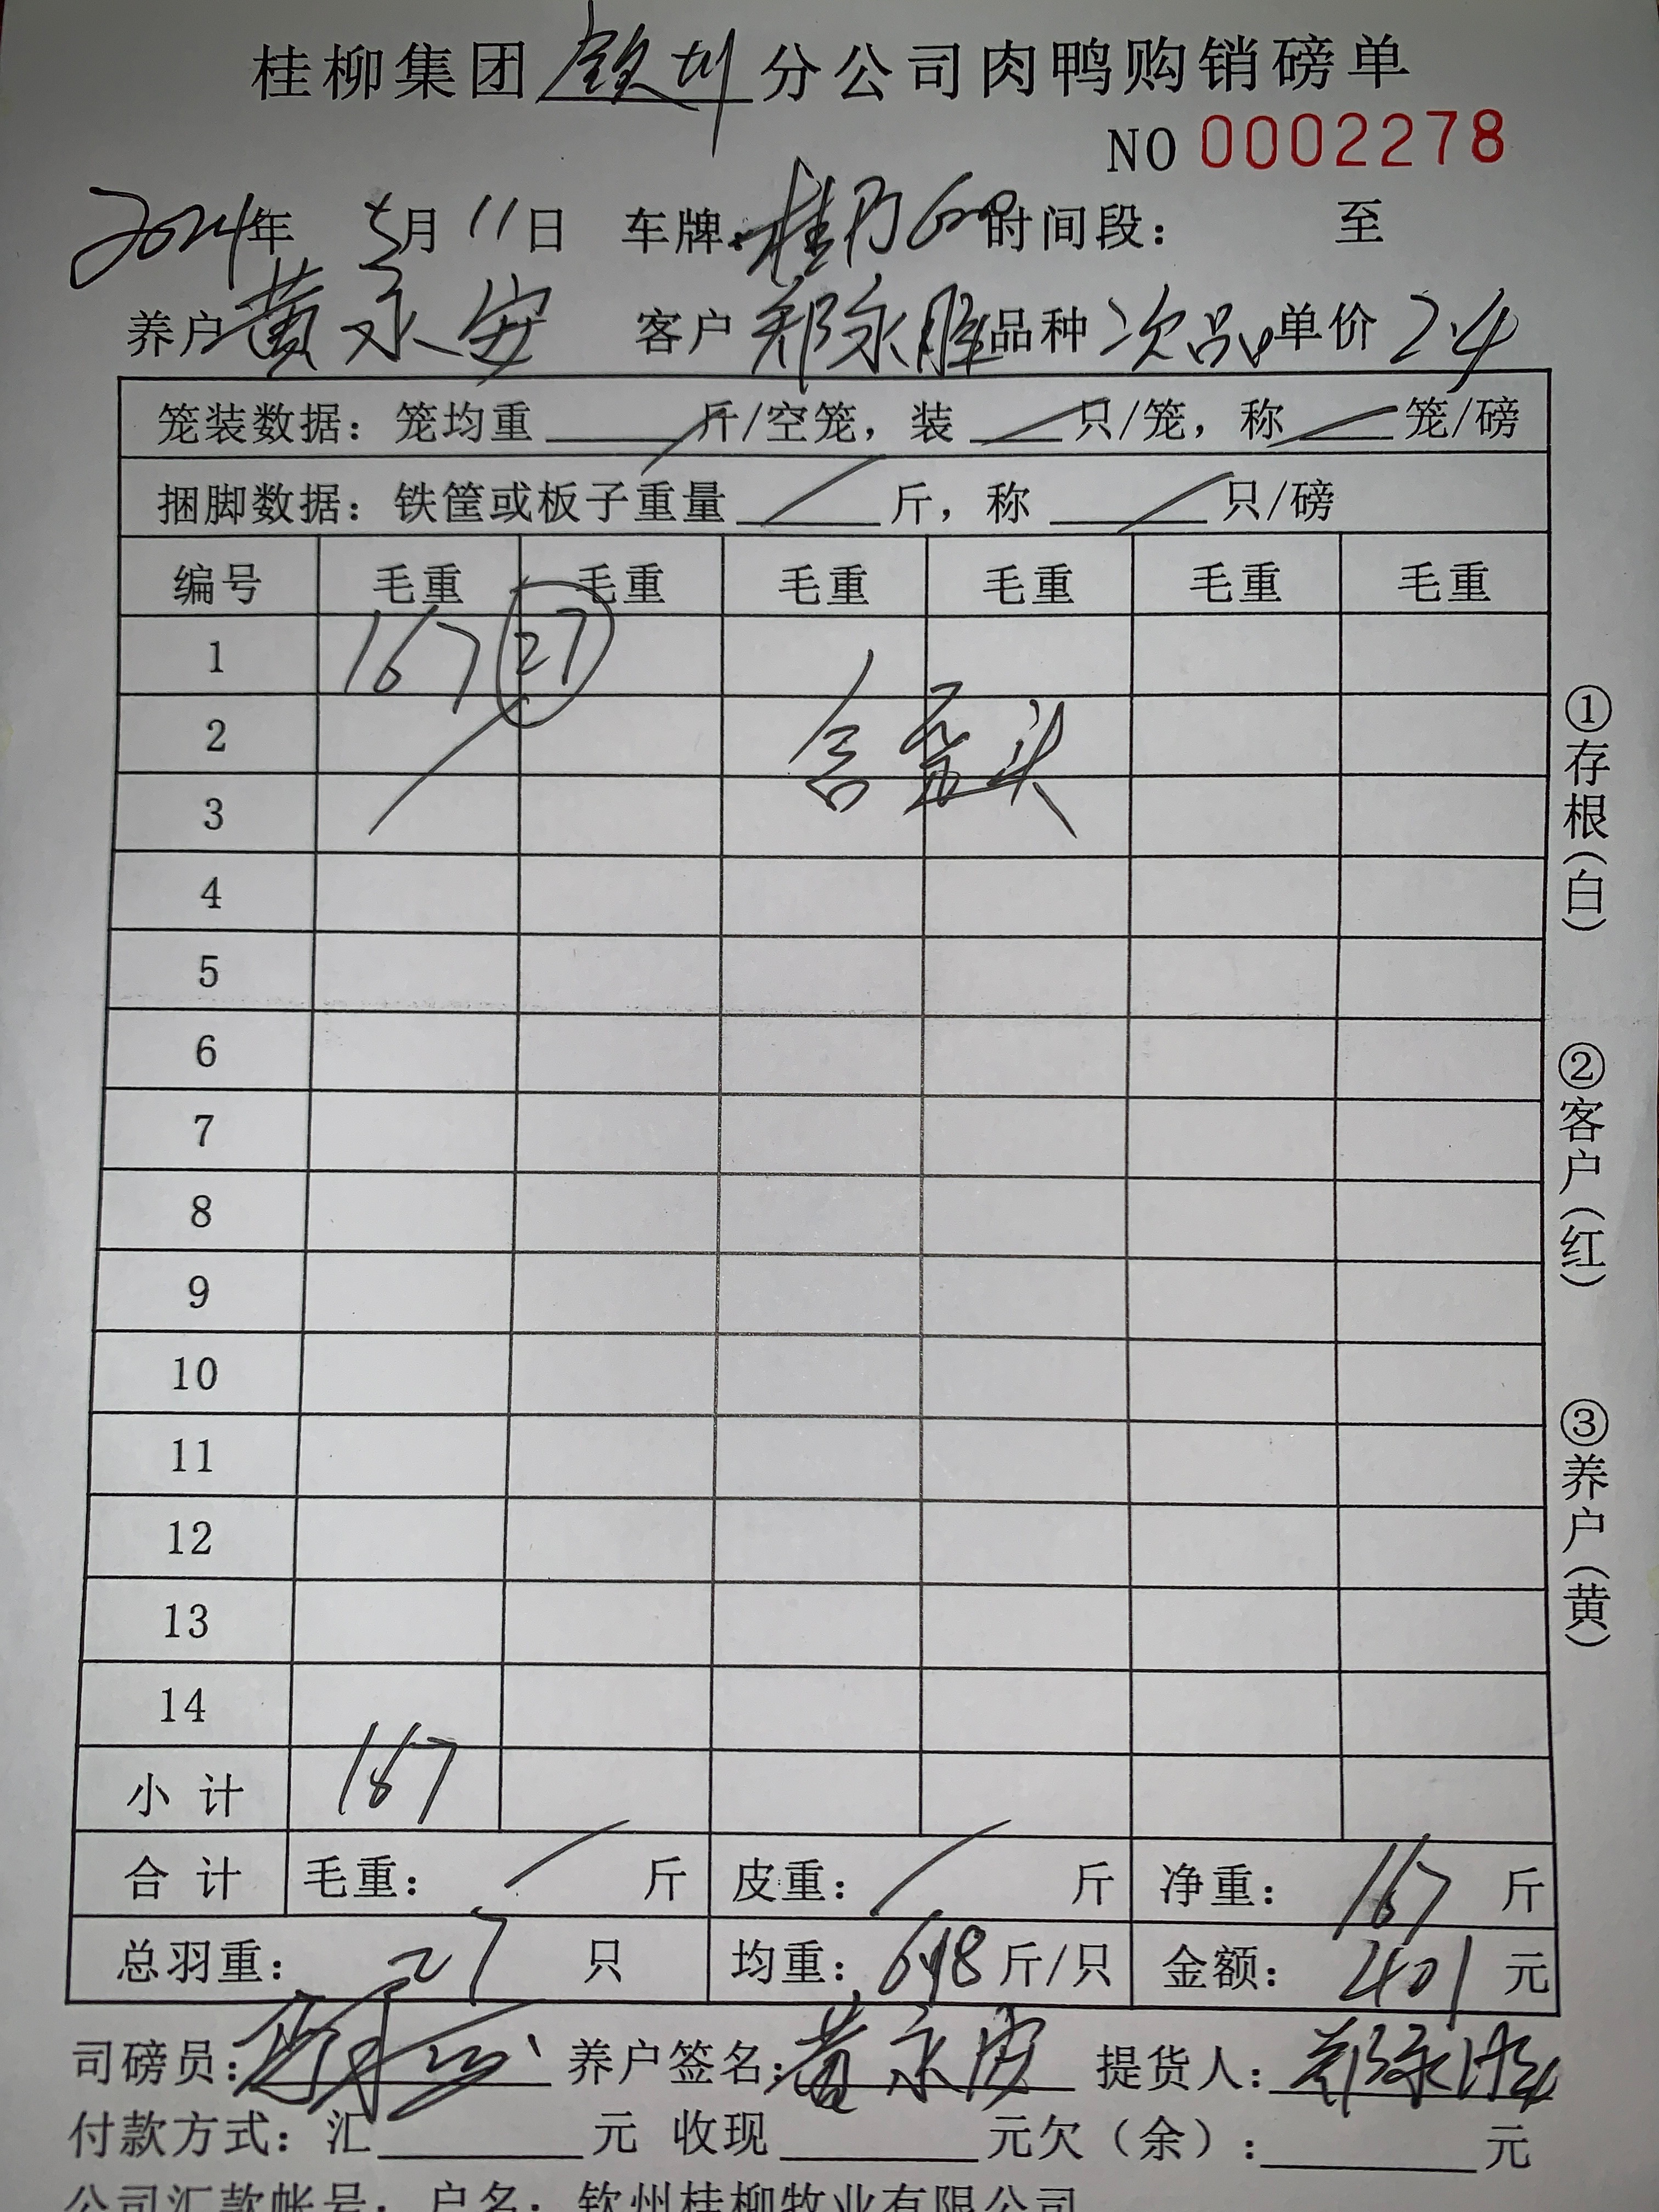 桂柳集团钦州分公司肉鸭购销磅单
NO 0002278
2024年 5月 11日 车牌: 桂 时间段: 至
养户 黄永安 客户 郑永胜 品种 次品 单价 2.4
笼装数据: 笼均重 斤/空笼, 装 只/笼, 称 笼/磅
捆脚数据: 铁筐或板子重量 斤, 称 只/磅
编号 毛重 毛重 毛重 毛重 毛重 毛重
1 167 27
2 含 头
3
4
5
6
7
8
9
10
11
12
13
14
小 计 167
合 计 毛重: 斤 皮重: 斤 净重: 167 斤
总羽重: 27 只 均重: 6.18 斤/只 金额: 401 元
司磅员: 养户签名: 黄永安 提货人: 郑永胜
付款方式: 汇 元 收现 元欠（余）: 元
公司汇款帐号: 户名: 钦州桂柳牧业有限公司
①存根（白）
②客户（红）
③养户（黄）